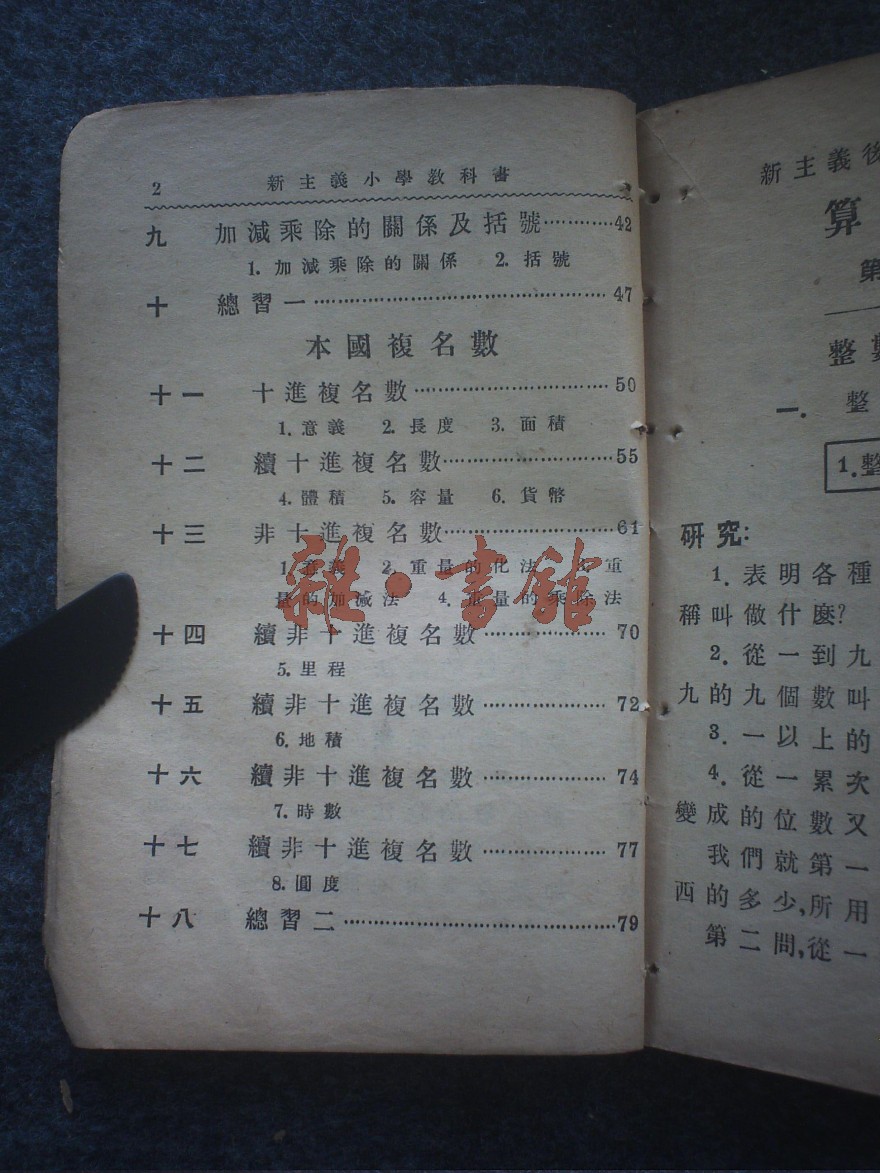 2 新主義小學教科書
九 加減乘除的關係及括號············42
1. 加減乘除的關係 2. 括號
十 總習一····································47
本國複名數
十一 十進複名數························50
1. 意義 2. 長度 3. 面積
十二 續十進複名數····················55
4. 體積 5. 容量 6. 貨幣
十三 非十進複名數····················61
1. 意義 2. 重量的化法 3. 重
量的加減法 4. 重量的乘除法
十四 續非十進複名數················70
5. 里程
十五 續非十進複名數················72
6. 地積
十六 續非十進複名數················74
7. 時數
十七 續非十進複名數················77
8. 圓度
十八 總習二································79
雜·書館
新主義後
算
第
整數
一. 整
1. 整
研究:
1. 表明各種
稱叫做什麼?
2. 從一到九
九的九個數叫
3. 一以上的
4. 從一累次
變成的位數又
我們就第一
西的多少,所用
第二問,從一